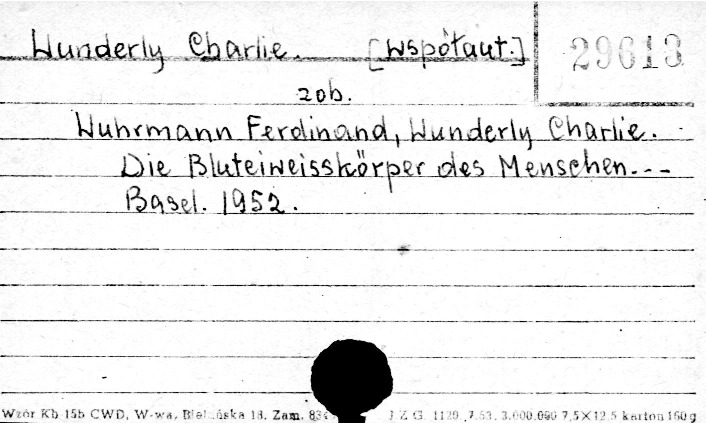 Wunderly Charlie. [współaut.]
29613
zob.
Wuhrmann Ferdinand, Wunderly Charlie.
Die Bluteiweisskörper des Menschen...
Basel. 1952.
Wzór Kb 15b CWD, W-wa, 18. Zam. J Z G. 1129 7.53. 3.000.000 7,5×12,5 karton 160g